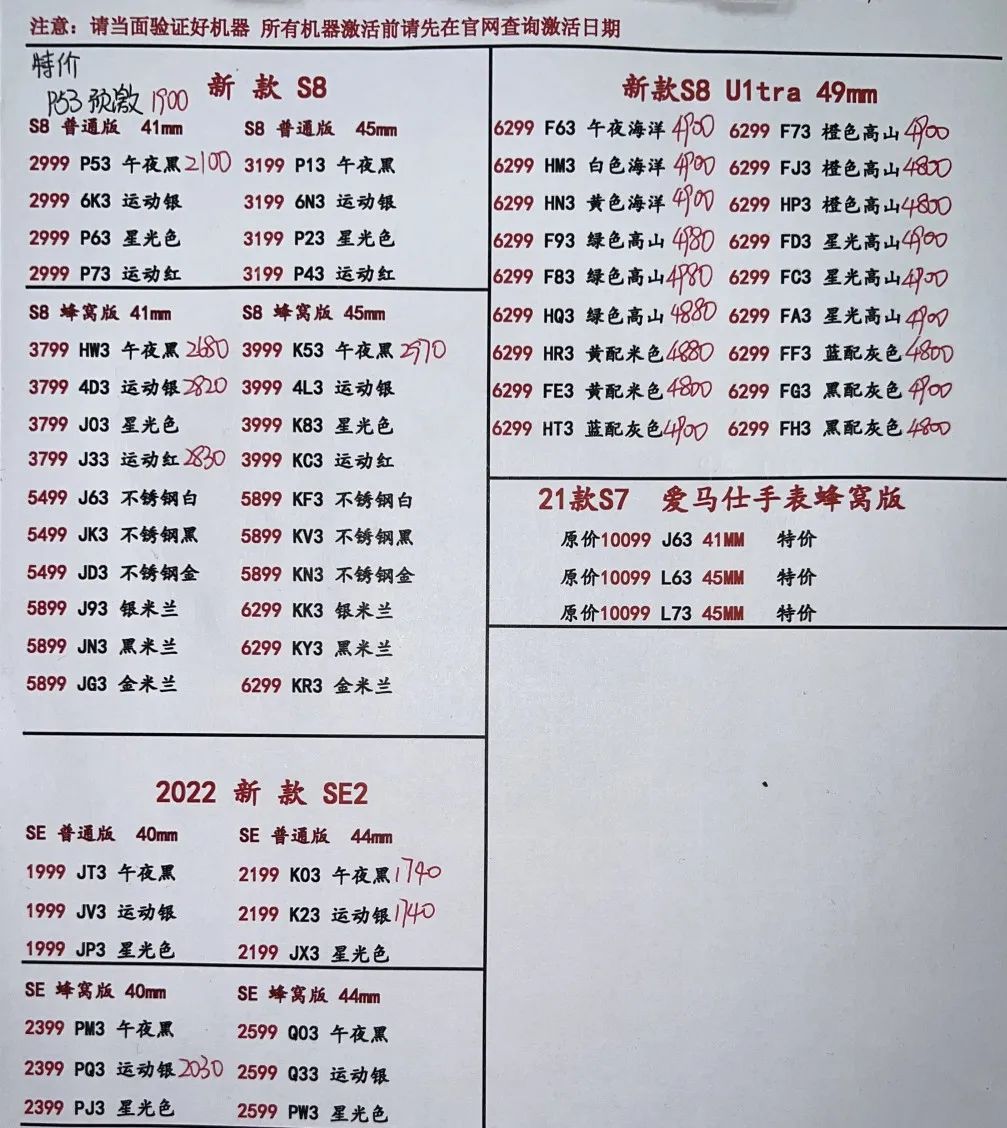 注意：请当面验证好机器 所有机器激活前请先在官网查询激活日期
特价
P53 预激 1900
新 款 S8
S8 普通版 41mm S8 普通版 45mm
2999 P53 午夜黑 2100 3199 P13 午夜黑
2999 6K3 运动银 3199 6N3 运动银
2999 P63 星光色 3199 P23 星光色
2999 P73 运动红 3199 P43 运动红
S8 蜂窝版 41mm S8 蜂窝版 45mm
3799 HW3 午夜黑 2680 3999 K53 午夜黑 2970
3799 4D3 运动银 2820 3999 4L3 运动银
3799 J03 星光色 3999 K83 星光色
3799 J33 运动红 2830 3999 KC3 运动红
5499 J63 不锈钢白 5899 KF3 不锈钢白
5499 JK3 不锈钢黑 5899 KV3 不锈钢黑
5499 JD3 不锈钢金 5899 KN3 不锈钢金
5899 J93 银米兰 6299 KK3 银米兰
5899 JN3 黑米兰 6299 KY3 黑米兰
5899 JG3 金米兰 6299 KR3 金米兰
2022 新 款 SE2
SE 普通版 40mm SE 普通版 44mm
1999 JT3 午夜黑 2199 K03 午夜黑 1740
1999 JV3 运动银 2199 K23 运动银 1740
1999 JP3 星光色 2199 JX3 星光色
SE 蜂窝版 40mm SE 蜂窝版 44mm
2399 PM3 午夜黑 2599 Q03 午夜黑
2399 PQ3 运动银 2030 2599 Q33 运动银
2399 PJ3 星光色 2599 PW3 星光色
新款S8 U1tra 49mm
6299 F63 午夜海洋 4900 6299 F73 橙色高山 4900
6299 HM3 白色海洋 4900 6299 FJ3 橙色高山 4800
6299 HN3 黄色海洋 4900 6299 HP3 橙色高山 4800
6299 F93 绿色高山 4980 6299 FD3 星光高山 4900
6299 F83 绿色高山 4980 6299 FC3 星光高山 4900
6299 HQ3 绿色高山 4880 6299 FA3 星光高山 4900
6299 HR3 黄配米色 4880 6299 FF3 蓝配灰色 4800
6299 FE3 黄配米色 4800 6299 FG3 黑配灰色 4900
6299 HT3 蓝配灰色 4900 6299 FH3 黑配灰色 4800
21款S7 爱马仕手表蜂窝版
原价10099 J63 41MM 特价
原价10099 L63 45MM 特价
原价10099 L73 45MM 特价